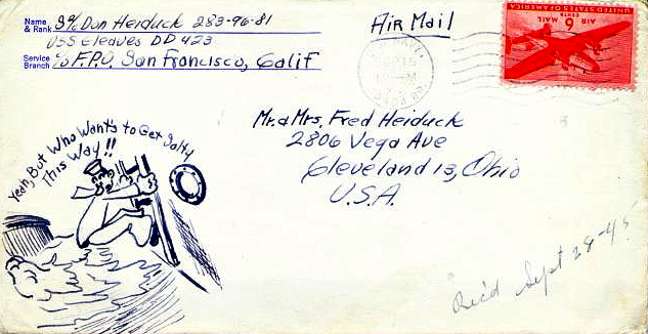 Name & Rank S 2/c Don Heiduck 283-96-81
USS Gleaves DD 423
Service Branch c/o F.P.O. San Francisco, Calif
Air Mail
UNITED STATES OF AMERICA
6 CENTS
AIR MAIL
Mr. & Mrs. Fred Heiduck
2806 Vega Ave
Cleveland 13, Ohio
U.S.A.
Yeah, But Who Wants to Get Salty
This Way!!
Rec'd Sept 28-45